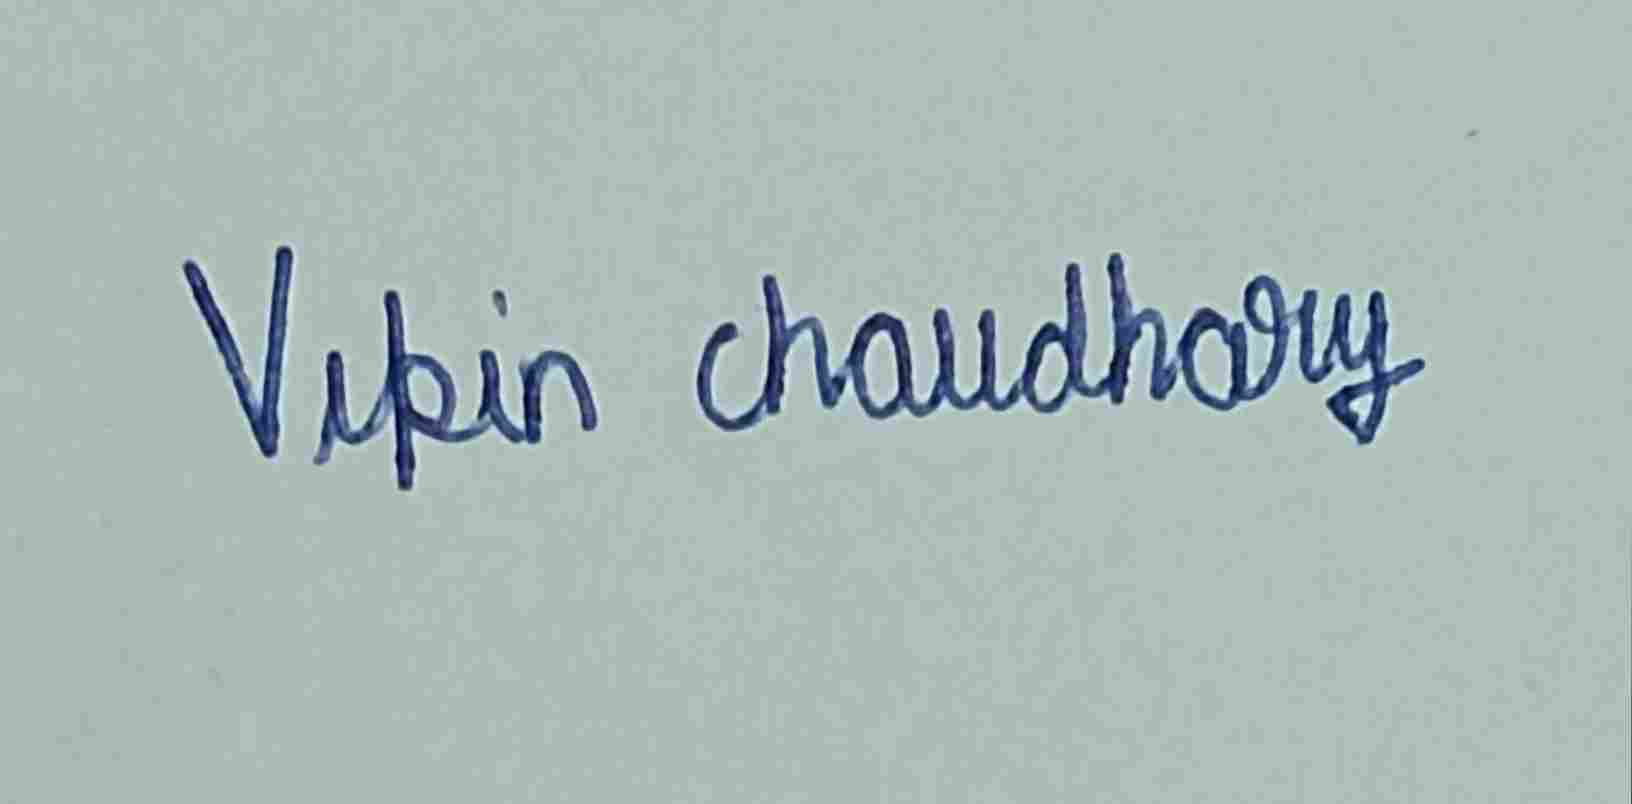 Vipin chaudhary